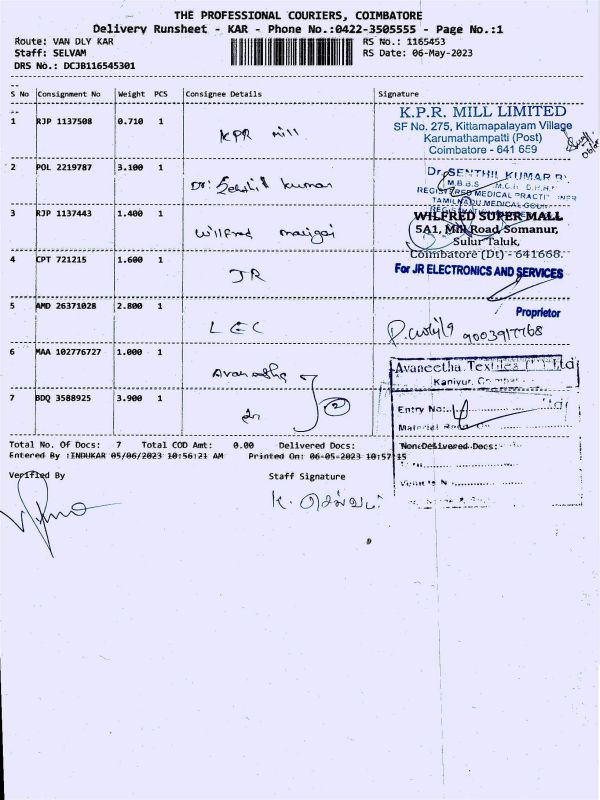 THE PROFESSIONAL COURIERS, COIMBATORE
Delivery Runsheet - KAR - Phone No.:0422-3505555 - Page No.:1
Route: VAN DLY KAR RS No.: 1165453
Staff: SELVAM RS Date: 06-May-2023
DRS No.: DCJB116545301
S No Consignment No Weight PCS Consignee Details Signature
1 RJP 1137508 0.710 1 KPR mill
K.P.R. MILL LIMITED
SF No. 275, Kittamapalayam Village
Karumathampatti (Post)
Coimbatore - 641 659
2 POL 2219787 3.100 1 Dr. Senthil Kumar
Dr. SENTHIL KUMAR
M.B.B.S
REGISTERED MEDICAL PRACTITIONER
TAMILNADU MEDICAL
3 RJP 1137443 1.400 1 Wilfred maligai
WILFRED SUPER MALL
5A1, Mill Road, Somanur,
Sulur Taluk,
Coimbatore (Dt) - 641668.
4 CPT 721215 1.600 1 JR
For JR ELECTRONICS AND SERVICES
Proprietor
5 AMD 26371028 2.800 1 LEC
9003917768
6 MAA 102776727 1.000 1
Avaneetha Textiles Ltd
Kaniyur,
7 BDQ 3588925 3.900 1 2
Entry No:
Material
Total No. Of Docs: 7 Total COD Amt: 0.00 Delivered Docs: NonDelivered Docs:
Entered By :INDUKAR 05/06/2023 10:56:21 AM Printed On: 06-05-2023 10:57:15
Verified By Staff Signature
K. செல்வம்